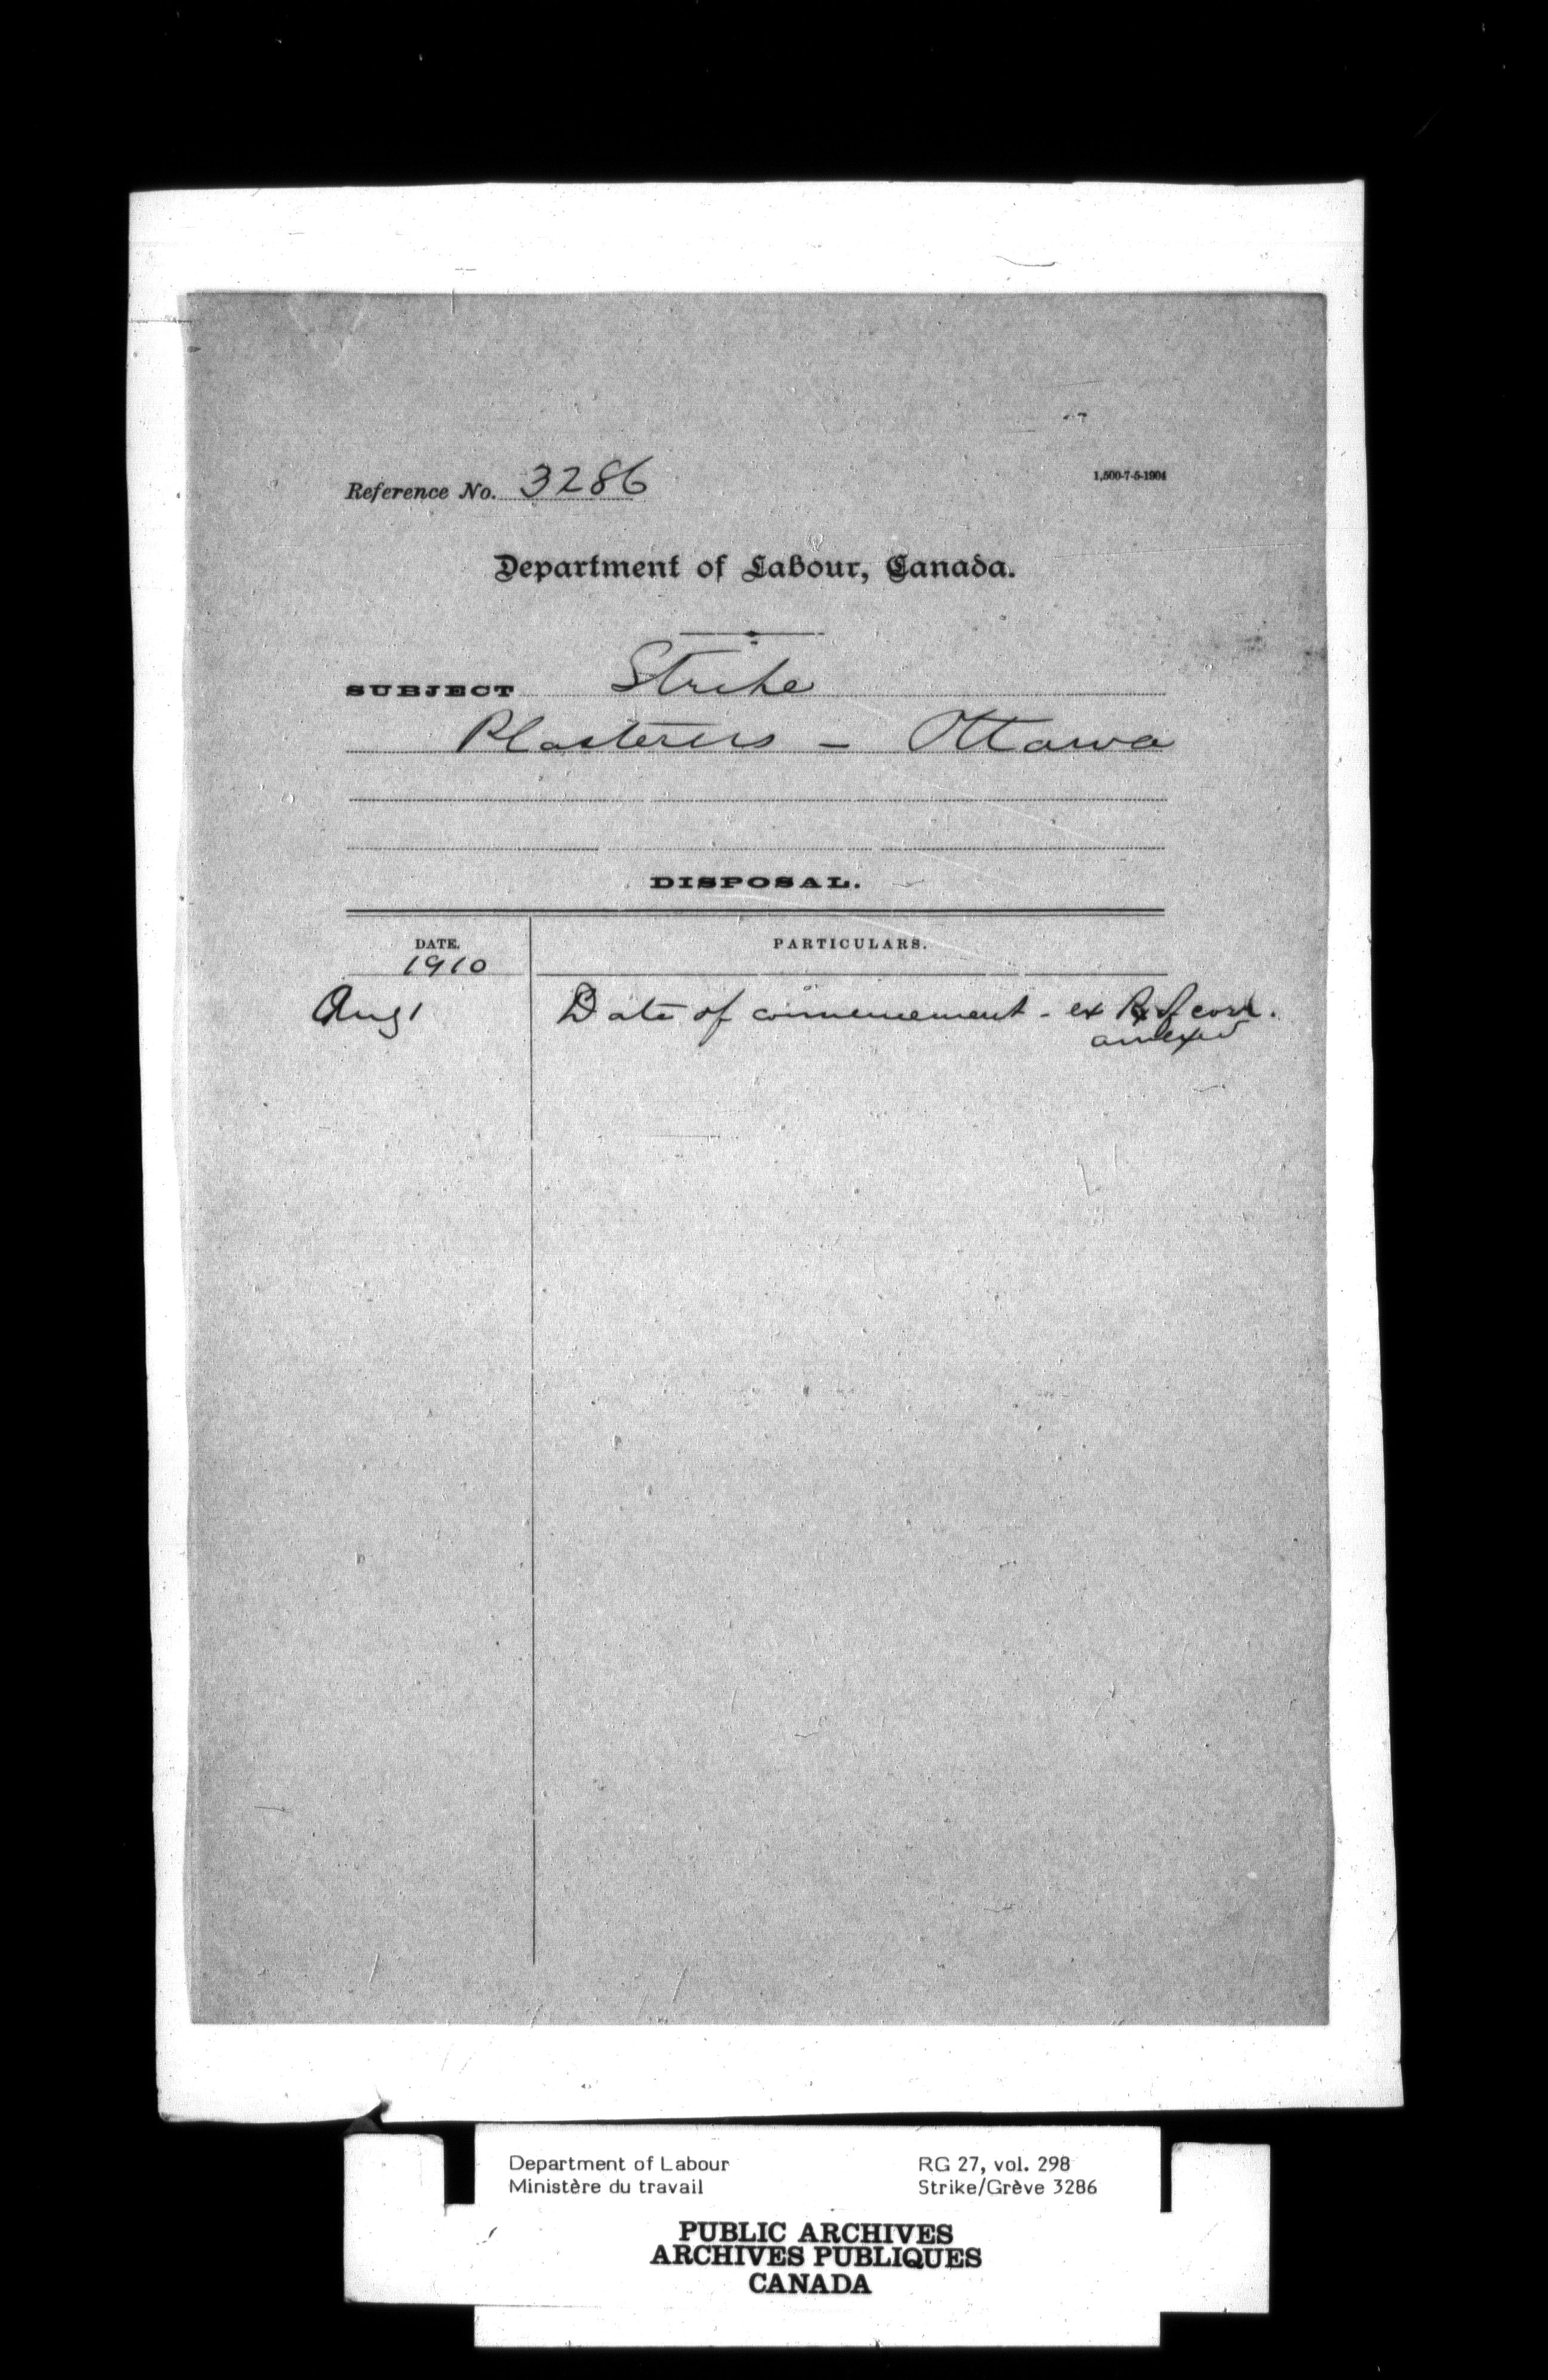 Reference No. 3286
1,500-7-5-1904
Department of Labour, Canada.
SUBJECT Strike
Plasterers - Ottawa
DISPOSAL.
DATE. PARTICULARS.
1910
Aug 1 Date of commencement - ex corr.
annexed
Department of Labour RG 27, vol. 298
Ministère du travail Strike/Grève 3286
PUBLIC ARCHIVES
ARCHIVES PUBLIQUES
CANADA